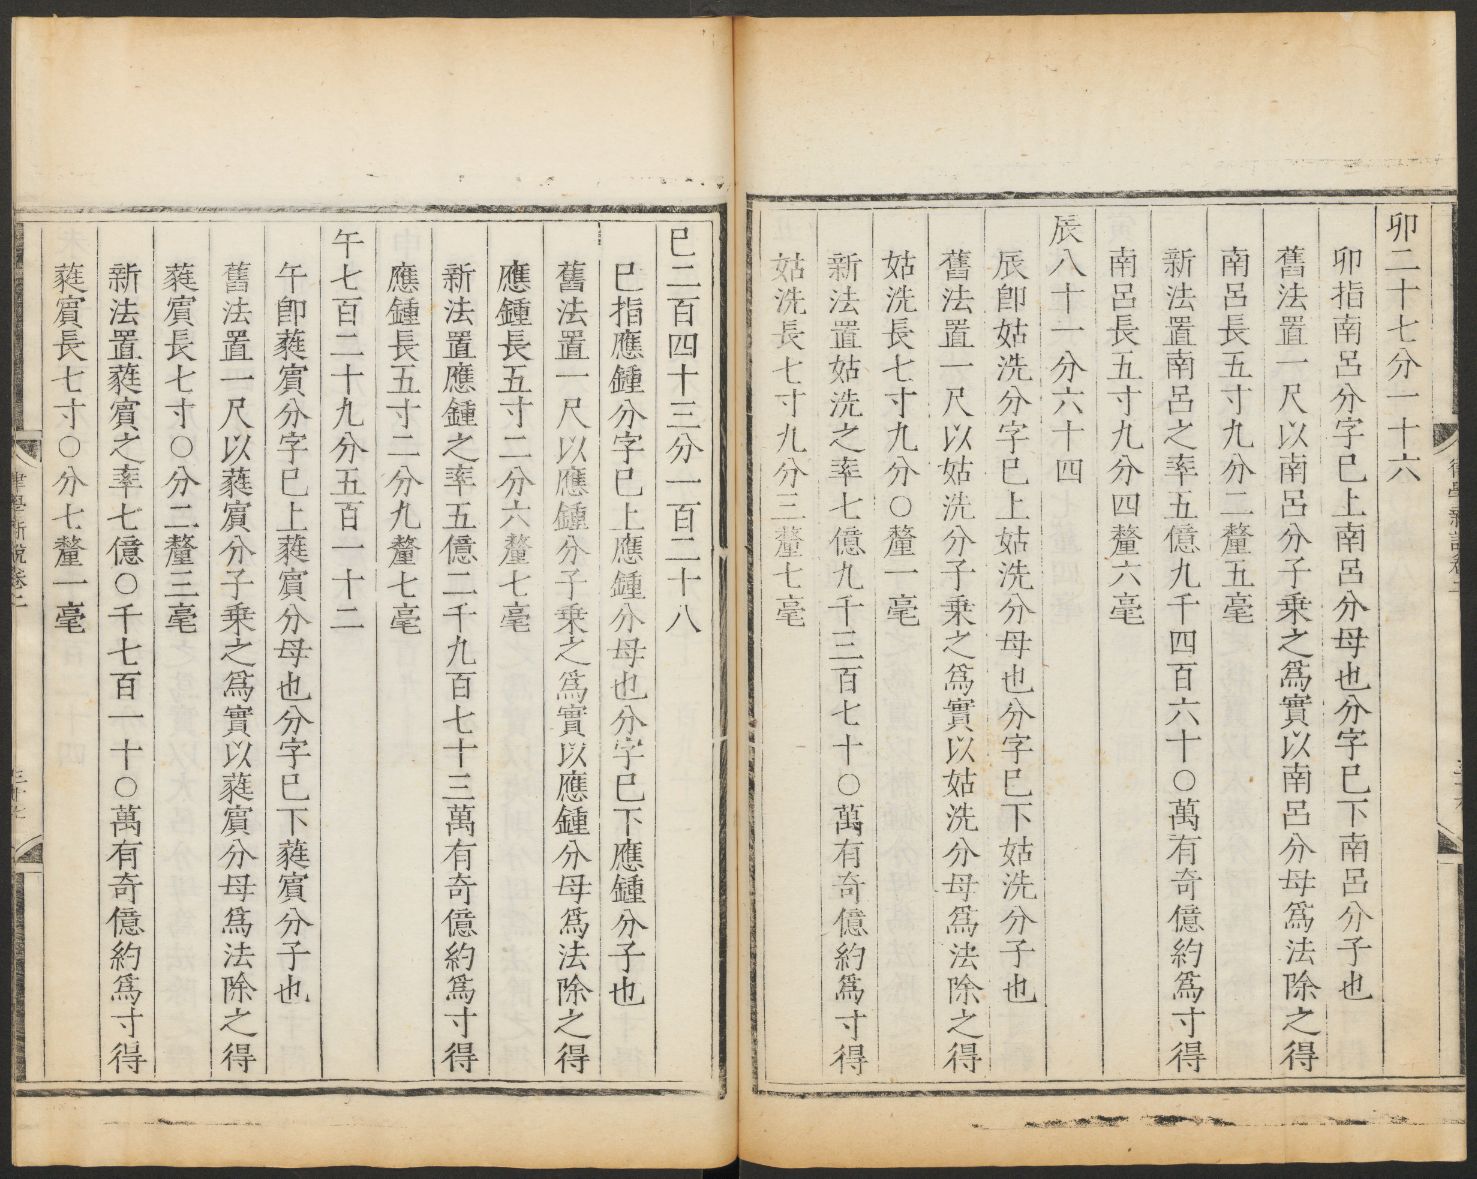 卯二十七分一十六
卯指南呂分字巳上南呂分母也分字巳下南呂分子也
舊法置一尺以南呂分子乗之爲實以南呂分母爲法除之得
南呂長五寸九分二釐五毫
新法置南呂之率五億九千四百六十〇萬有奇億約爲寸得
南呂長五寸九分四釐六毫
辰八十一分六十四
辰卽姑洗分字巳上姑洗分母也分字巳下姑洗分子也
舊法置一尺以姑洗分子乗之爲實以姑洗分母爲法除之得
姑洗長七寸九分〇釐一毫
新法置姑洗之率七億九千三百七十〇萬有奇億約爲寸得
姑洗長七寸九分三釐七毫
巳二百四十三分一百二十八
巳指應鍾分字巳上應鍾分母也分字巳下應鍾分子也
舊法置一尺以應鍾分子乗之爲實以應鍾分母爲法除之得
應鍾長五寸二分六釐七毫
新法置應鍾之率五億二千九百七十三萬有奇億約爲寸得
應鍾長五寸二分九釐七毫
午七百二十九分五百一十二
午卽蕤賔分字巳上蕤賔分母也分字巳下蕤賔分子也
舊法置一尺以蕤賔分子乗之爲實以蕤賔分母爲法除之得
蕤賔長七寸〇分二釐三毫
新法置蕤賔之率七億〇千七百一十〇萬有奇億約爲寸得
蕤賔長七寸〇分七釐一毫
律學新說卷二